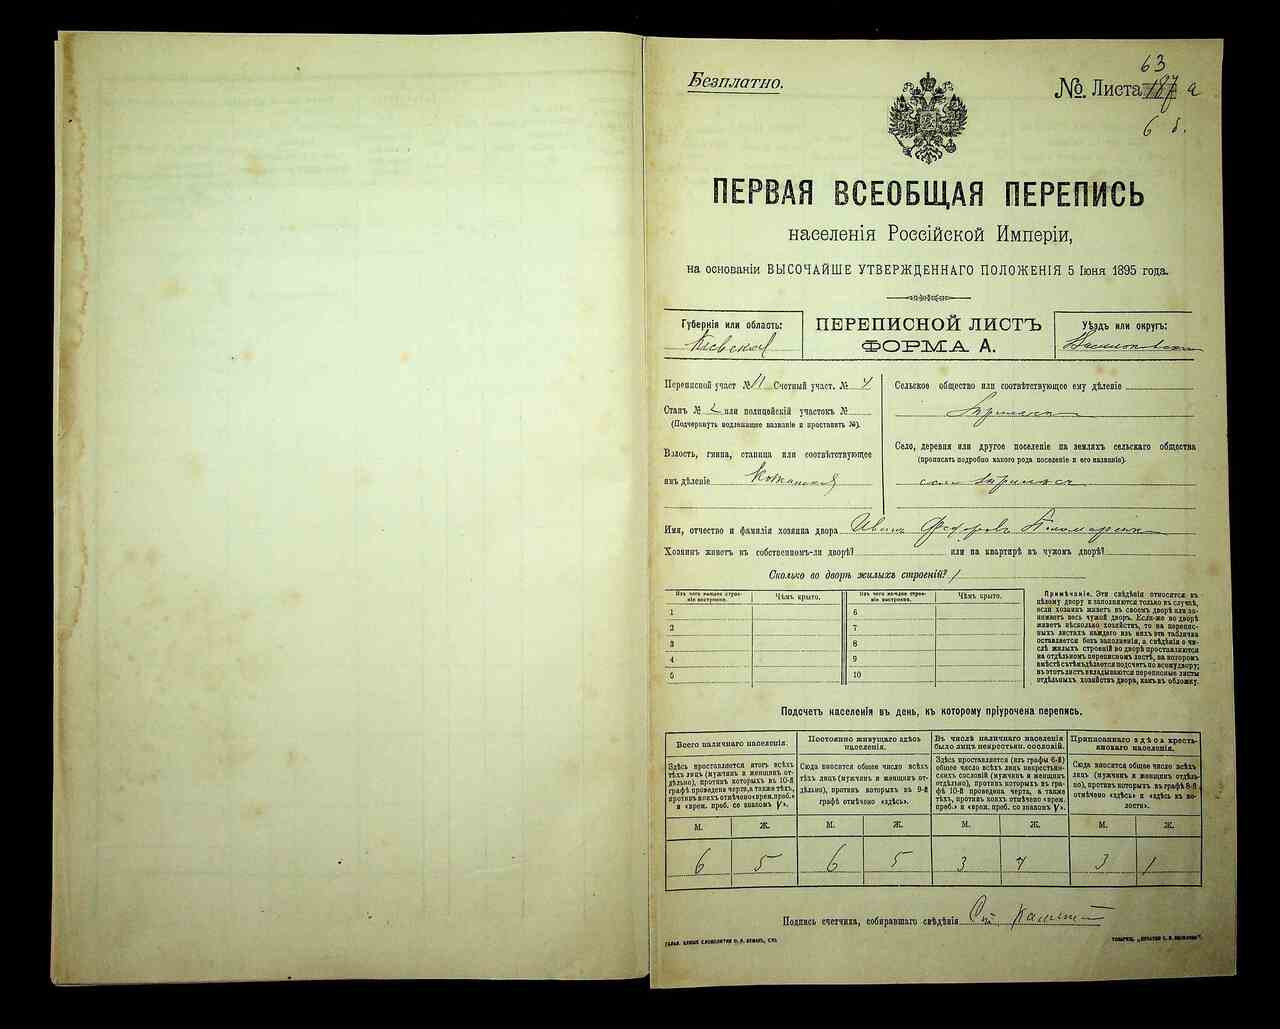 Безплатно.
63
№. Листа 187 а
6 б.
ПЕРВАЯ ВСЕОБЩАЯ ПЕРЕПИСЬ
населенія Россійской Имперіи,
на основаніи ВЫСОЧАЙШЕ УТВЕРЖДЕННАГО ПОЛОЖЕНІЯ 5 Іюня 1895 года.
Губернія или область:
Кіевская
ПЕРЕПИСНОЙ ЛИСТЪ
ФОРМА А.
Уѣздъ или округъ:
Васильковскій
Переписной участ. № 11 Счетный участ. № 4
Станъ № 2 или полицейскій участокъ №
(Подчеркнуть подлежащее названіе и проставить №).
Волость, гмина, станица или соотвѣтствующее
имъ дѣленіе Кожанская
Сельское общество или соотвѣтствующее ему дѣленіе
Село, деревня или другое поселеніе на земляхъ сельскаго общества
(прописать подробно какого рода поселеніе и его названіе).
село
Имя, отчество и фамилія хозяина двора Иванъ Федоровъ
Хозяинъ живетъ въ собственномъ-ли дворѣ? или на квартирѣ въ чужомъ дворѣ?
Сколько во дворѣ жилыхъ строеній? 1
Изъ чего каждое строеніе выстроено. Чѣмъ крыто. Изъ чего каждое строеніе выстроено. Чѣмъ крыто.
1 6
2 7
3 8
4 9
5 10
Примѣчаніе. Эти свѣдѣнія относятся къ
цѣлому двору и заполняются только въ случаѣ,
если хозяинъ живетъ въ своемъ дворѣ или занимаетъ
весь чужой дворъ. Если-же во дворѣ
живетъ нѣсколько хозяйствъ, то на переписныхъ
листахъ каждаго изъ нихъ эта табличка
оставляется безъ заполненія, а свѣдѣнія о числѣ
жилыхъ строеній во дворѣ проставляются
на отдѣльномъ переписномъ листѣ, на которомъ
вмѣстѣ съ тѣмъ дѣлается подсчетъ по всему двору;
въ этотъ листъ вкладываются переписные листы
отдѣльныхъ хозяйствъ двора, какъ въ обложку.
Подсчетъ населенія въ день, къ которому пріурочена перепись.
Всего наличнаго населенія.
Здѣсь проставляется итогъ всѣхъ
тѣхъ лицъ (мужчинъ и женщинъ отдѣльно),
противъ которыхъ въ 10-й
графѣ проведена черта, а также тѣхъ,
противъ коихъ отмѣчено «врем. преб.»
и «врем. преб. со знакомъ V».
Постоянно живущаго здѣсь
населенія.
Сюда вносится общее число всѣхъ
тѣхъ лицъ (мужчинъ и женщинъ отдѣльно),
противъ которыхъ въ 9-й
графѣ отмѣчено «здѣсь».
Въ числѣ наличнаго населенія
было лицъ некрестьян. сословій.
Здѣсь проставляется (изъ графы 6-й)
общее число всѣхъ лицъ некрестьянскихъ
сословій (мужчинъ и женщинъ
отдѣльно), противъ которыхъ въ графѣ
10-й проведена черта, а также
тѣхъ, противъ коихъ отмѣчено «врем.
преб.» и «врем. преб. со знакомъ V».
Приписаннаго здѣсь крестьянскаго
населенія.
Сюда вносится общее число всѣхъ
лицъ (мужчинъ и женщинъ отдѣльно),
противъ которыхъ въ графѣ 8-й
отмѣчено «здѣсь» и «здѣсь въ волости».
М. Ж. М. Ж. М. Ж. М. Ж.
6 5 6 5 3 4 3 1
Подпись счетчика, собиравшаго свѣдѣнія